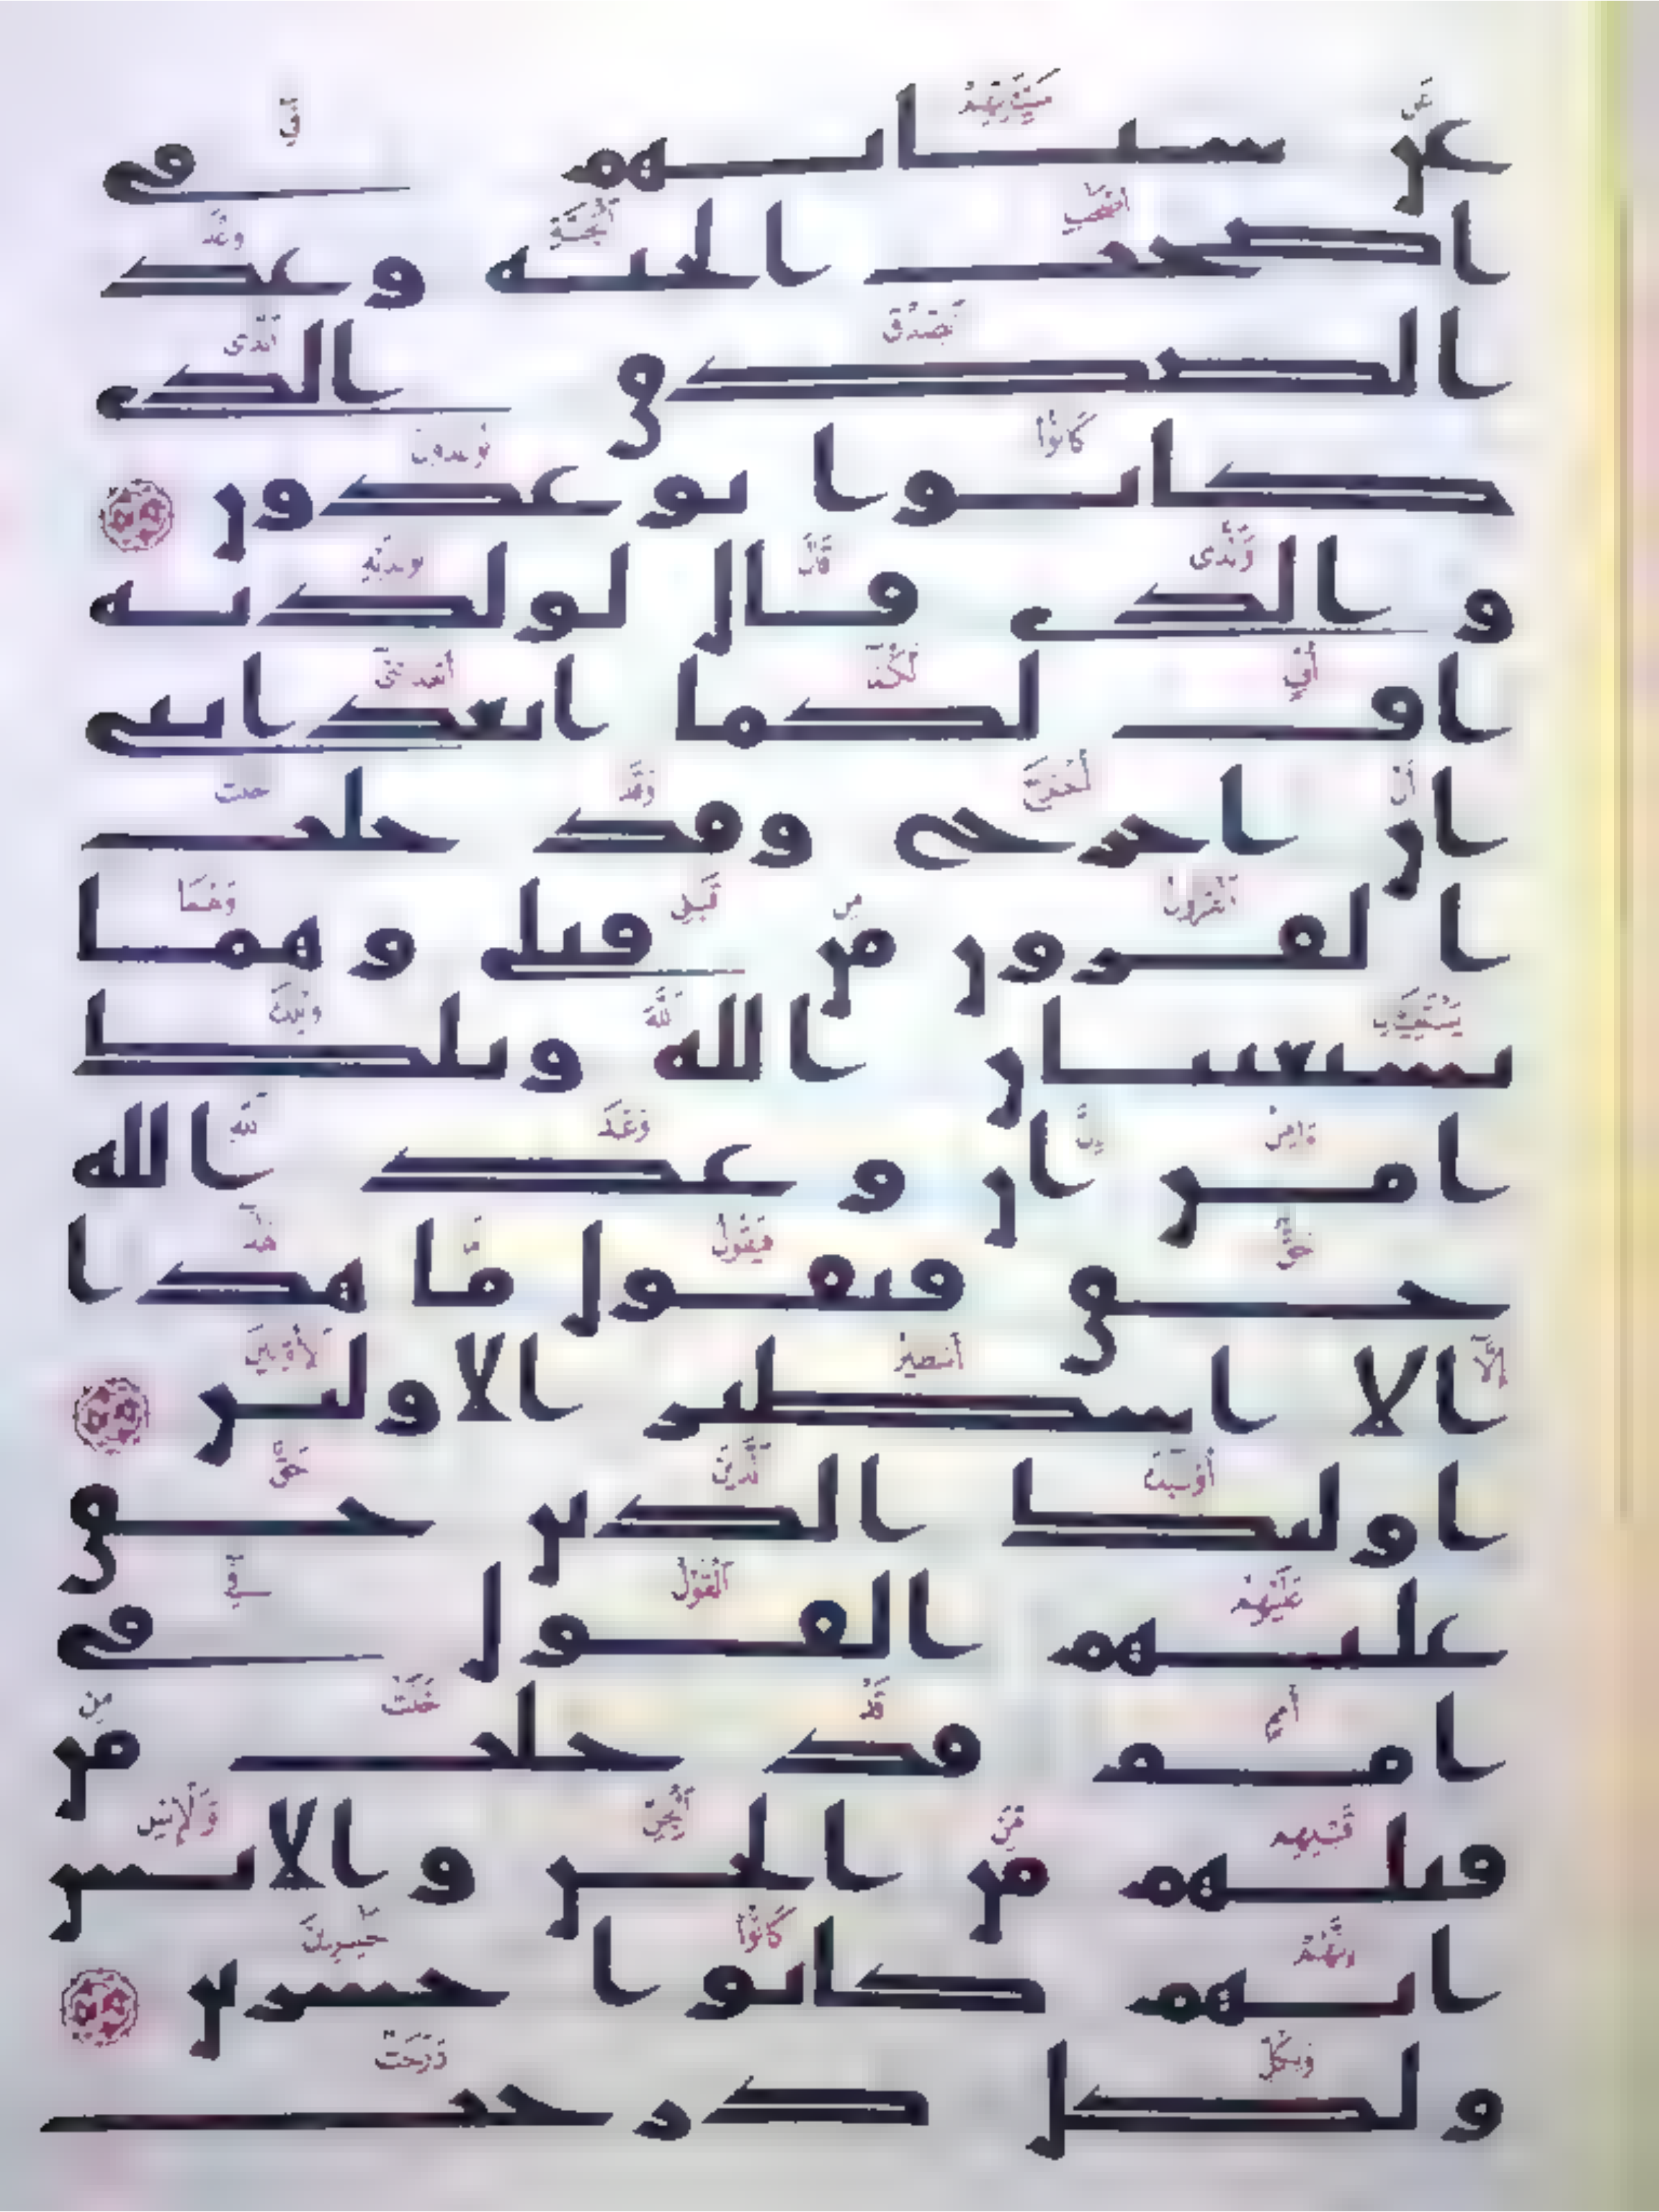 عن سياتهم في
اصحب الجنة وعد
الصدق الذي
كانوا يوعدون
والذي قال لولديه
اف لكما اتعدانني
ان اخرج وقد خلت
القرون من قبلي وهما
يستغيثان الله ويلك
امن ان وعد الله
حق فيقول ما هذا
الا اسطير الاولين
اولئك الذين حق
عليهم القول في
امم قد خلت من
قبلهم من الجن والانس
انهم كانوا خسرين
ولكل درجت